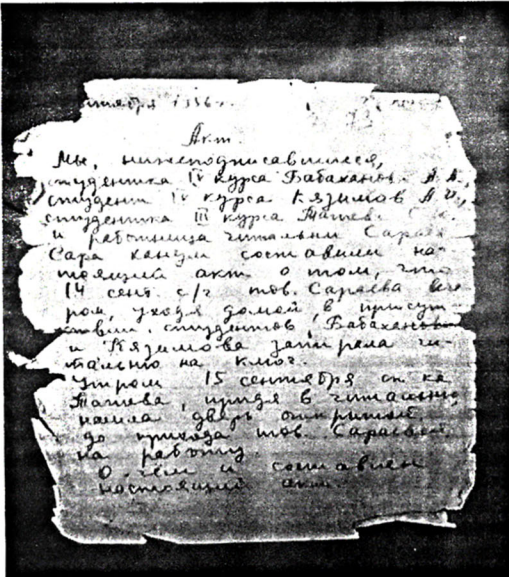 тября 1936 г.
Акт.
Мы, нижеподписавшиеся,
студентка IV курса Бабаханова А.А.,
студент IV курса Кязимов А.
студентка III курса Тагиева
и работница читальни Сараева
Сара ханум составили на-
тоящий акт о том, что
14 сент. с/г тов. Сараева вече
ром, уходя домой, в присут-
ствии студентов, Бабахановой
и Кязимова заперла чи-
тальню на ключ.
Утром 15 сентября ст-ка
Тагиева, придя в читальню,
нашла дверь открытой
до прихода тов. Сараевой
на работу.
О чём и составлен
настоящий акт.